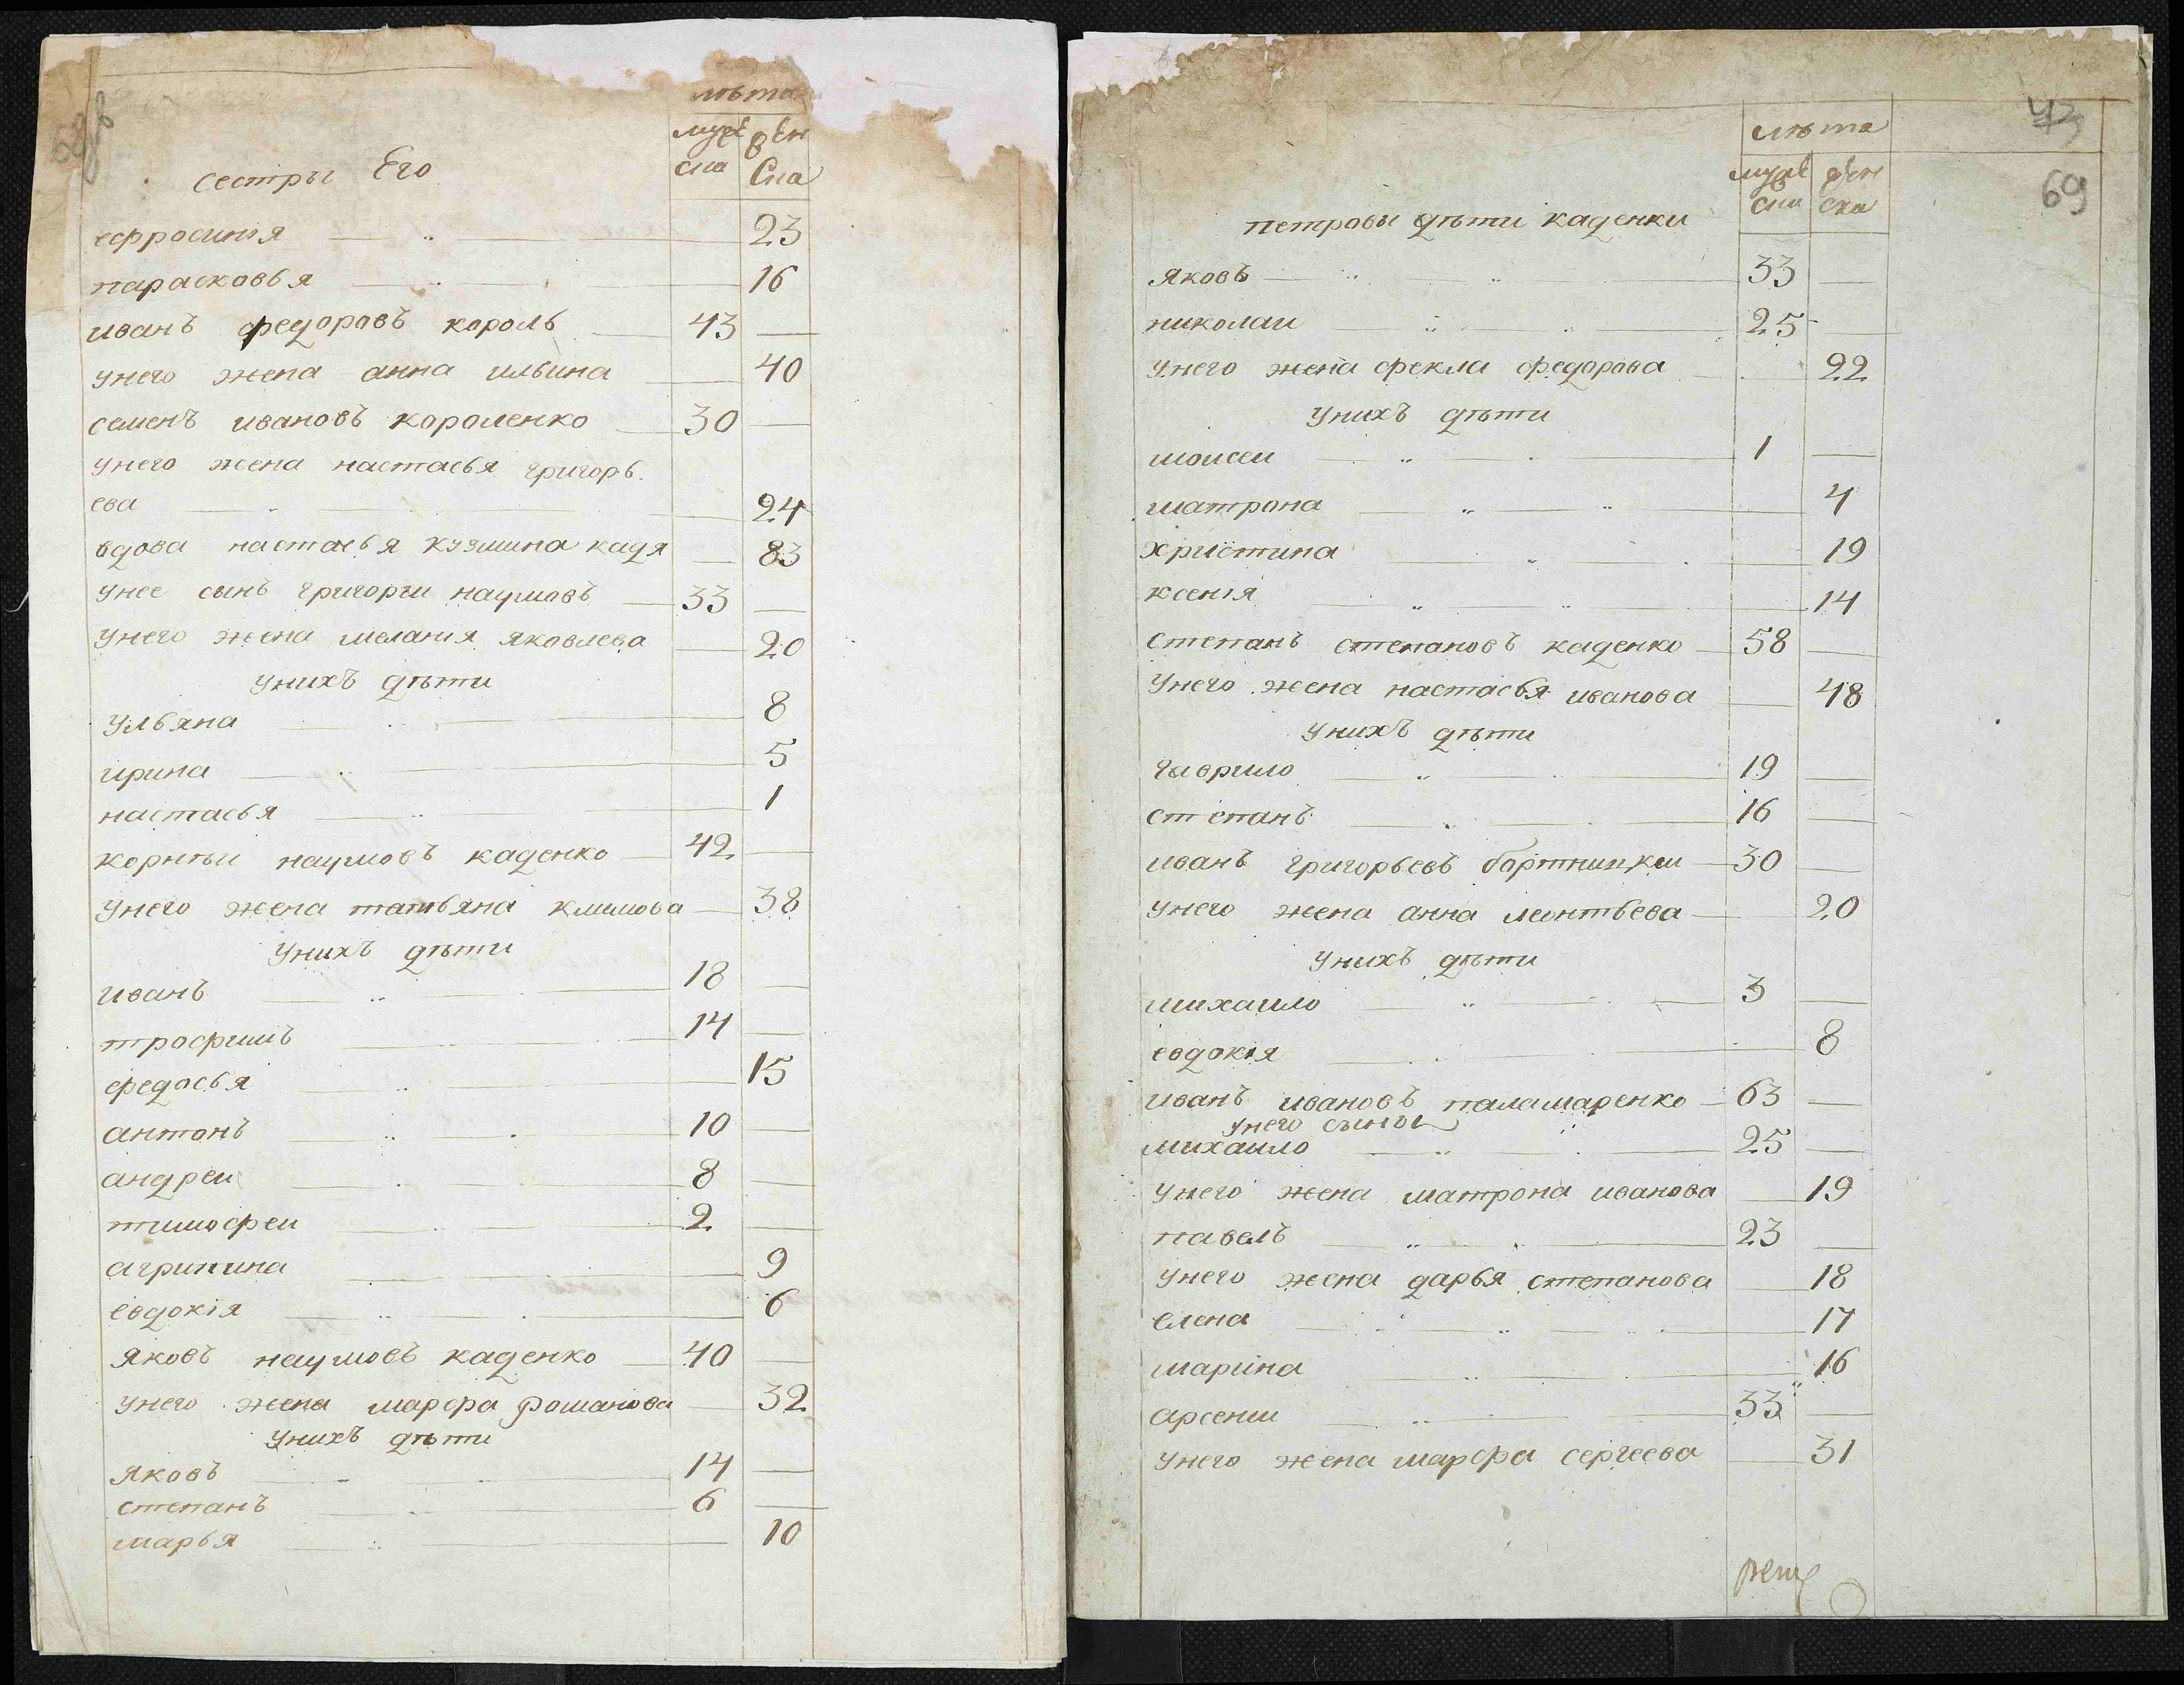 лѣта
муже жен
ска ска
сестры Его
ефросинія 23
парасковья 16
иванъ федоровъ король 43
унего жена анна ильина 40
семенъ ивановъ короленко 30
унего жена настасья григорь
ева 24
вдова настасья кузмина кадя 83
унее сынъ григорги наумовъ 33
унего жена меланія яковлева 20
унихъ дѣти
ульяна 8
ирина 5
настасья 1
корнѣи наумовъ каденко 42
унего жена татьяна климова 38
унихъ дѣти
иванъ 18
трофимъ 14
федосья 15
антонъ 10
андреи 8
тимофеи 2
агрипина 9
евдокія 6
яковъ наумовъ каденко 40
унего жена марфа романова 32
унихъ дѣти
яковъ 14
степанъ 6
марья 10
43
69
лѣта
муже жен
ска ска
петровы дѣти каденки
яковъ 33
николаи 25
унего жена фекла федорова 22
унихъ дѣти
моисеи 1
матрона 4
христина 19
ксенія 14
степанъ степановъ каденко 58
унего жена настасья иванова 48
унихъ дѣти
гаврило 19
степанъ 16
иванъ григорьевъ бортницкии 30
унего жена анна леонтьева 20
унихъ дѣти
михаило 3
евдокія 8
иванъ ивановъ паламаренко 63
унего сыны
михаило 25
унего жена матрона иванова 19
павелъ 23
унего жена дарья степанова 18
елена 17
марина 16
арсении 33
унего жена марфа сергеева 31